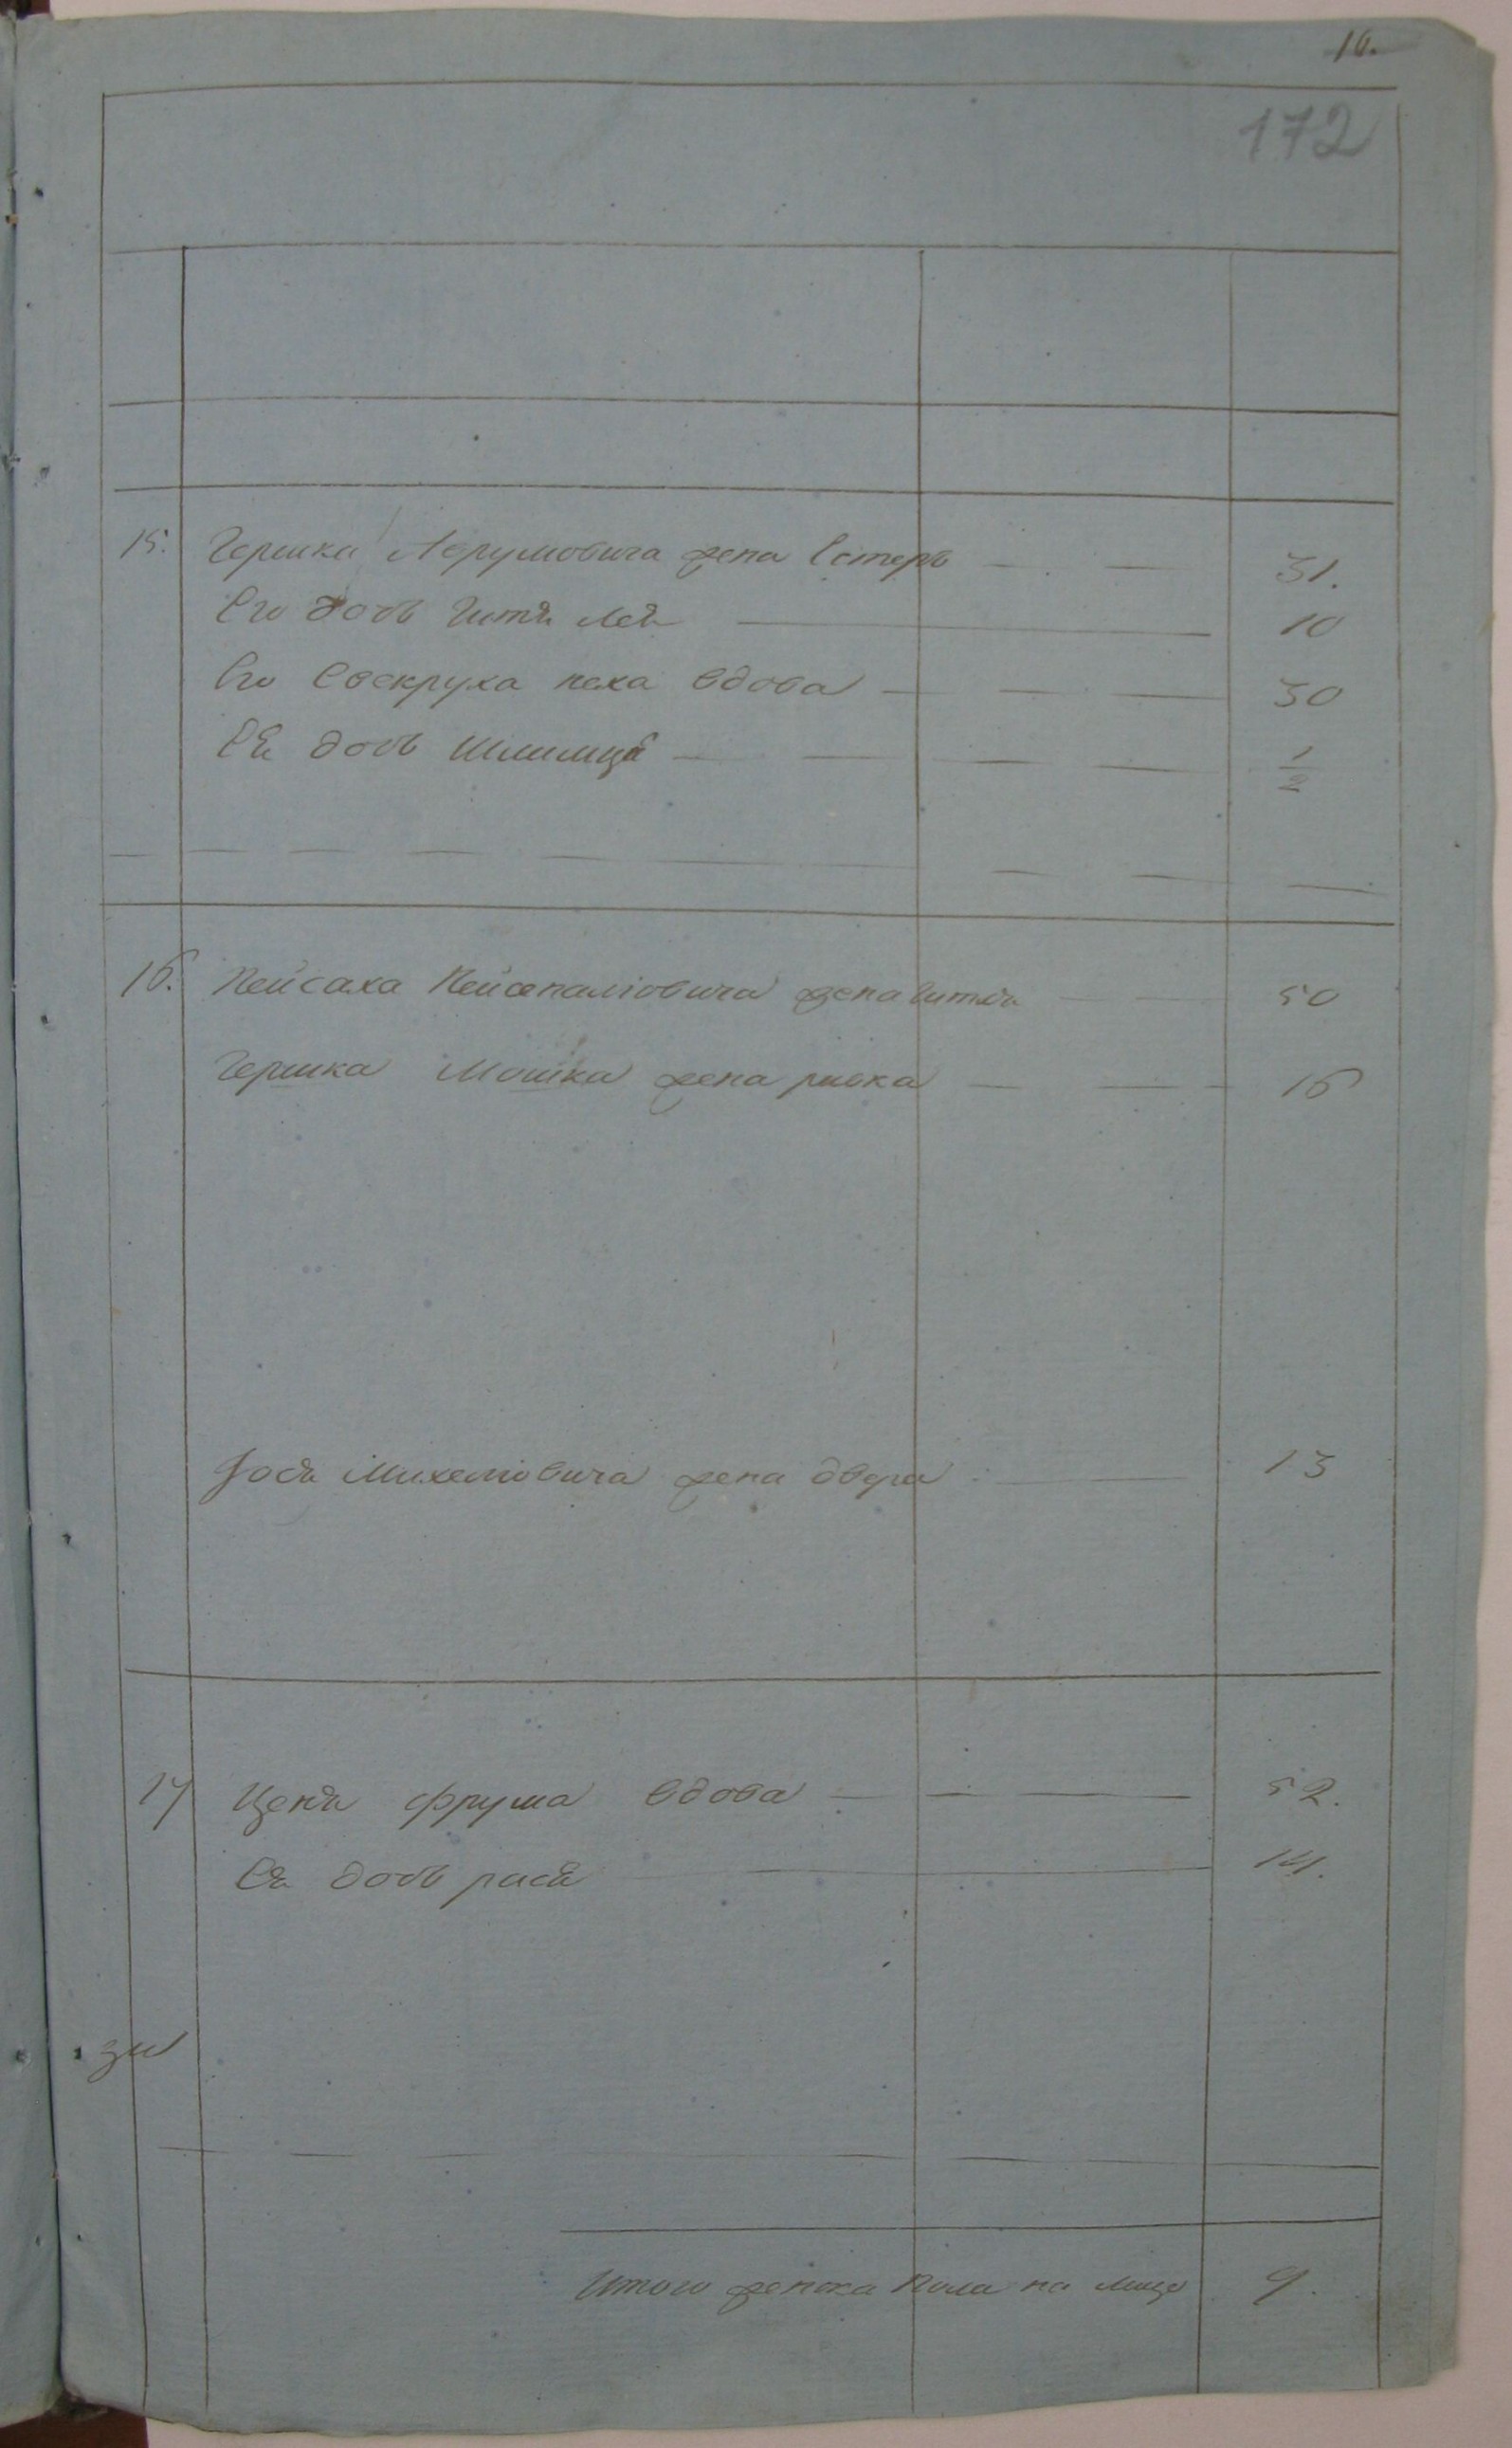 16.
172
15. Гершка Лорумовича жена Естеръ 31.
Его дочь Гитя Лея 10
Его Свекруха песа вдова 30
Ея дочь 1/2
16. Пейсаха жена Гитля 50
Гершка Мошка жена ривка 16
Іося Михелiовича жена двера 13
17 Ценя фрума вдова 52.
Ея дочь рися 14.
Итого женска пола на лицо 9.